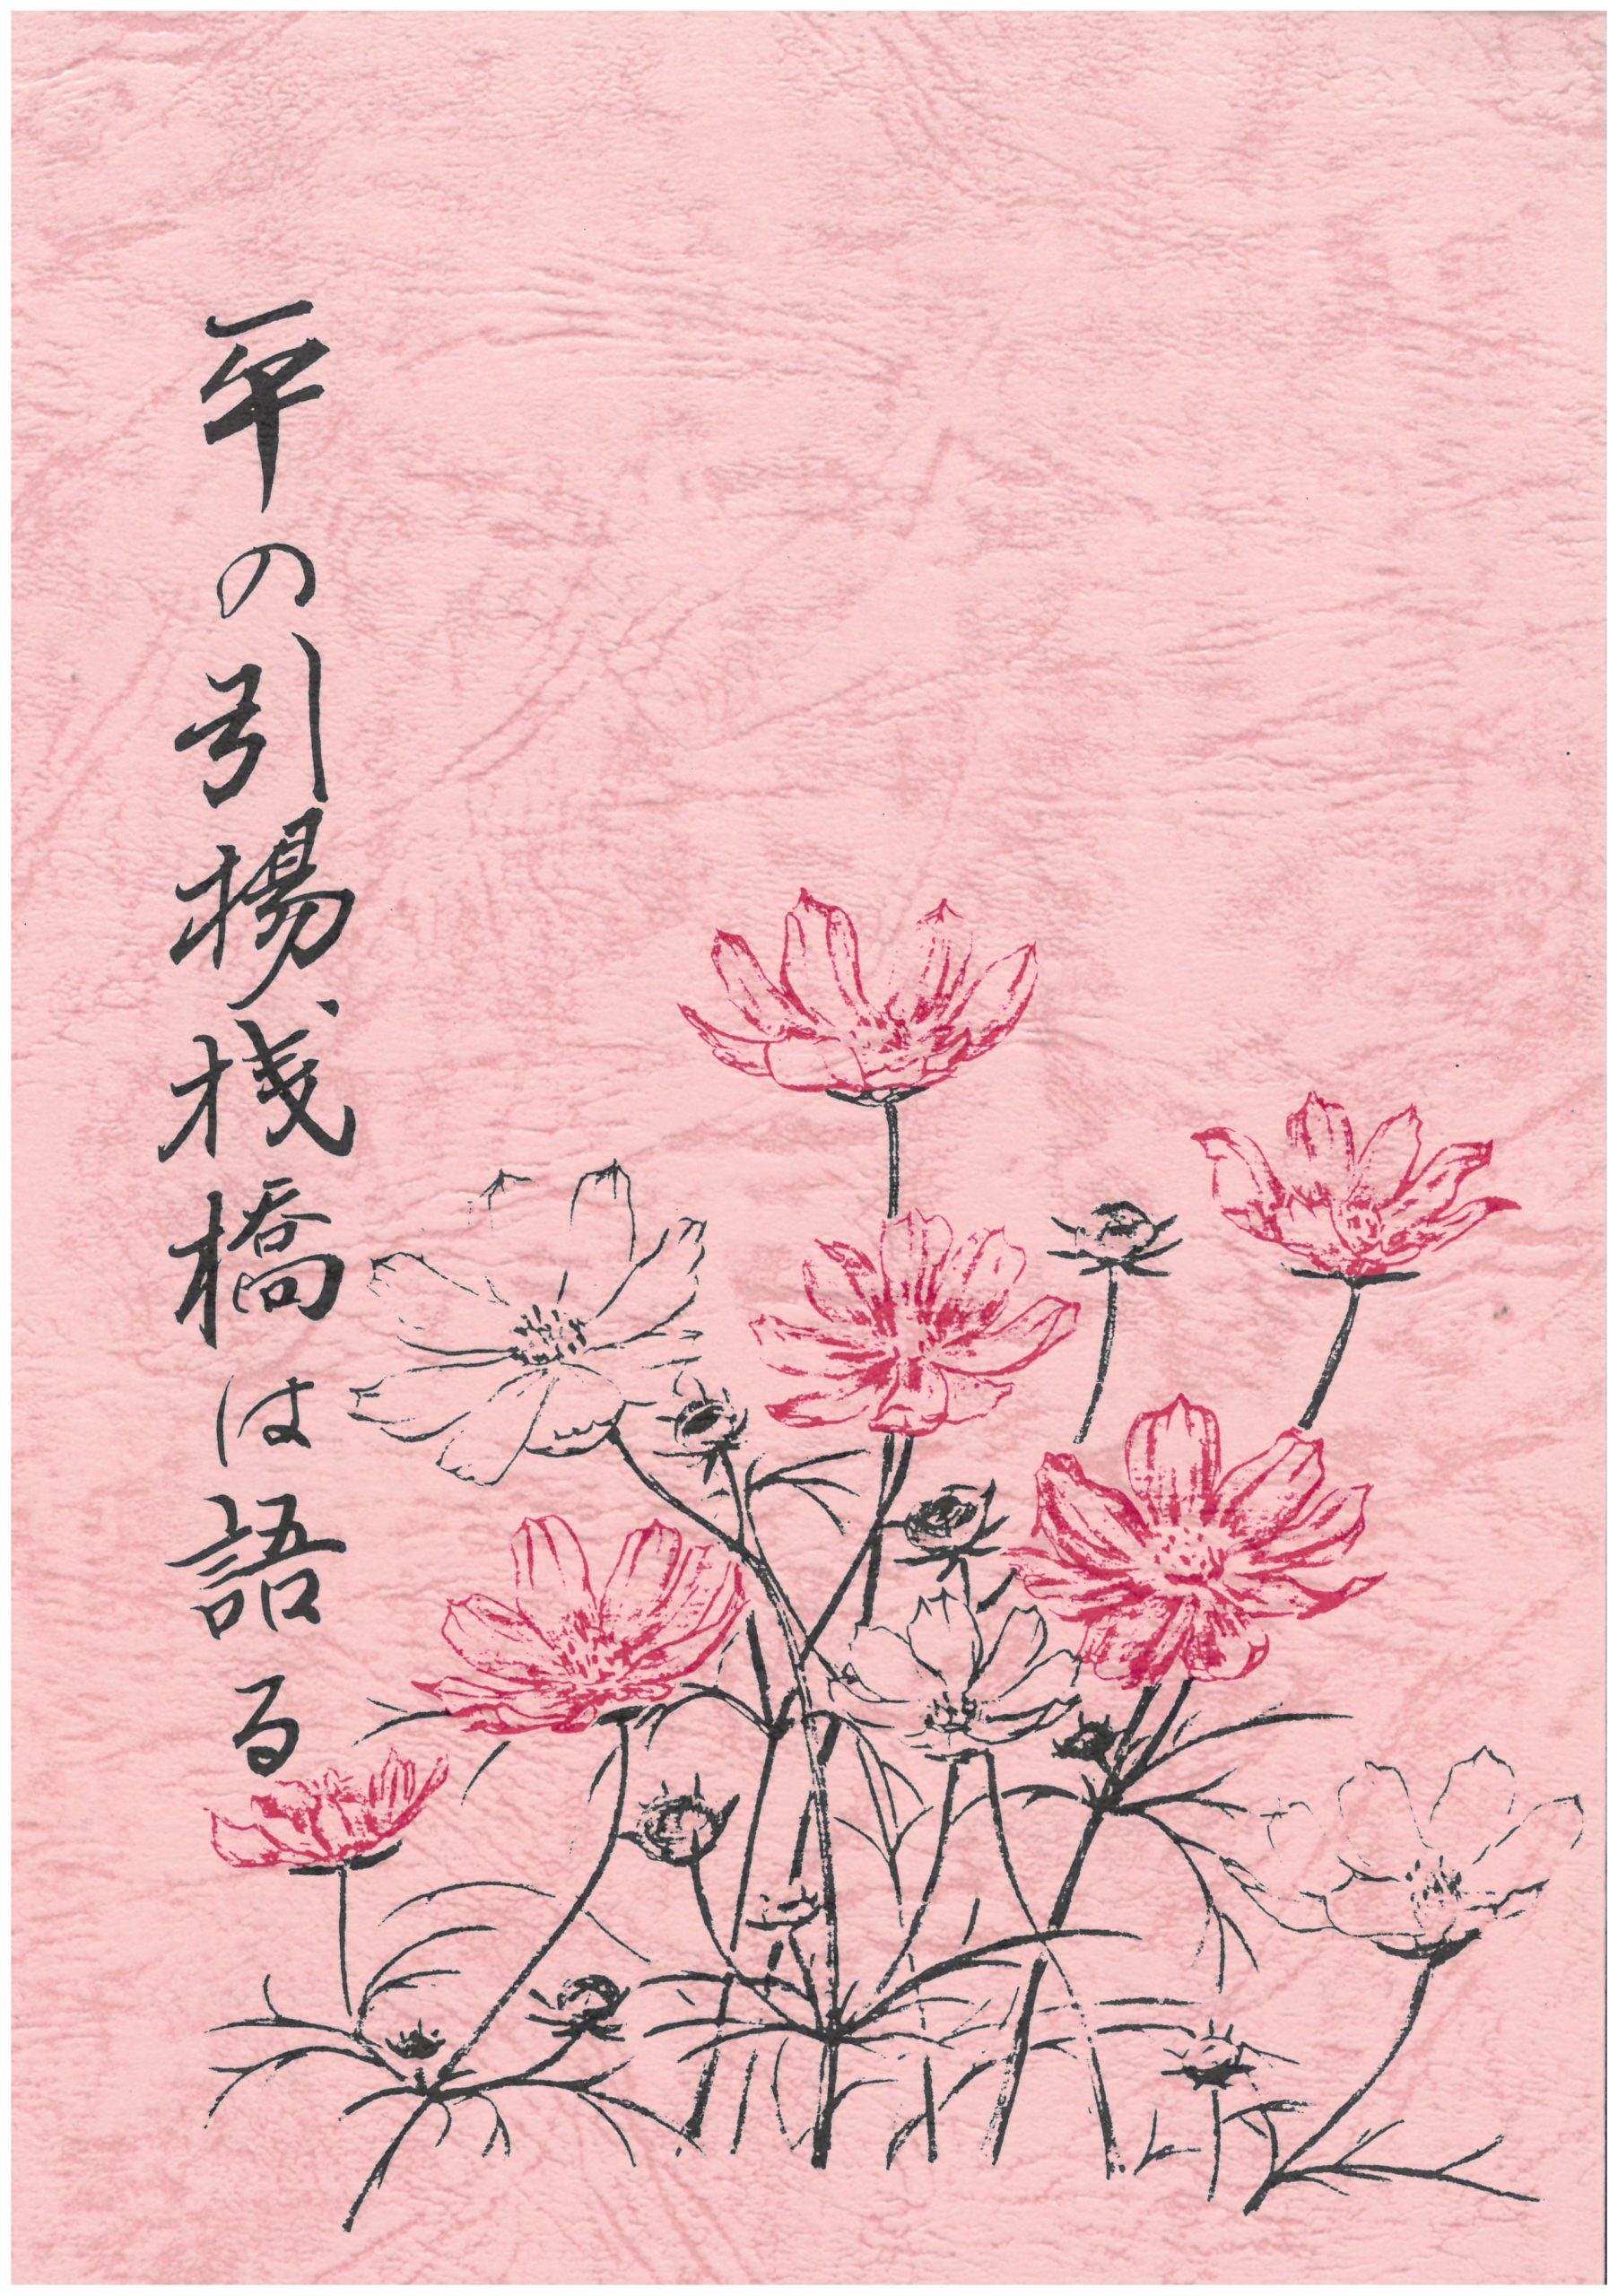 平の引揚桟橋は語る